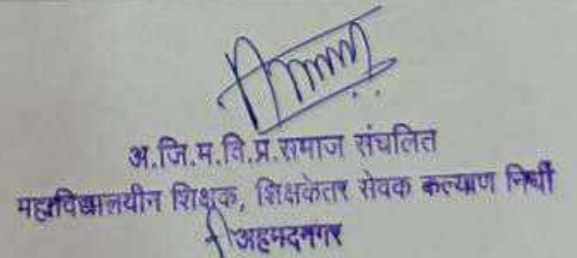 अ.जि.म.वि.प्र.समाज संचलित
महाविद्यालयीन शिक्षक, शिक्षकेतर सेवक कल्याण निधी
अहमदनगर